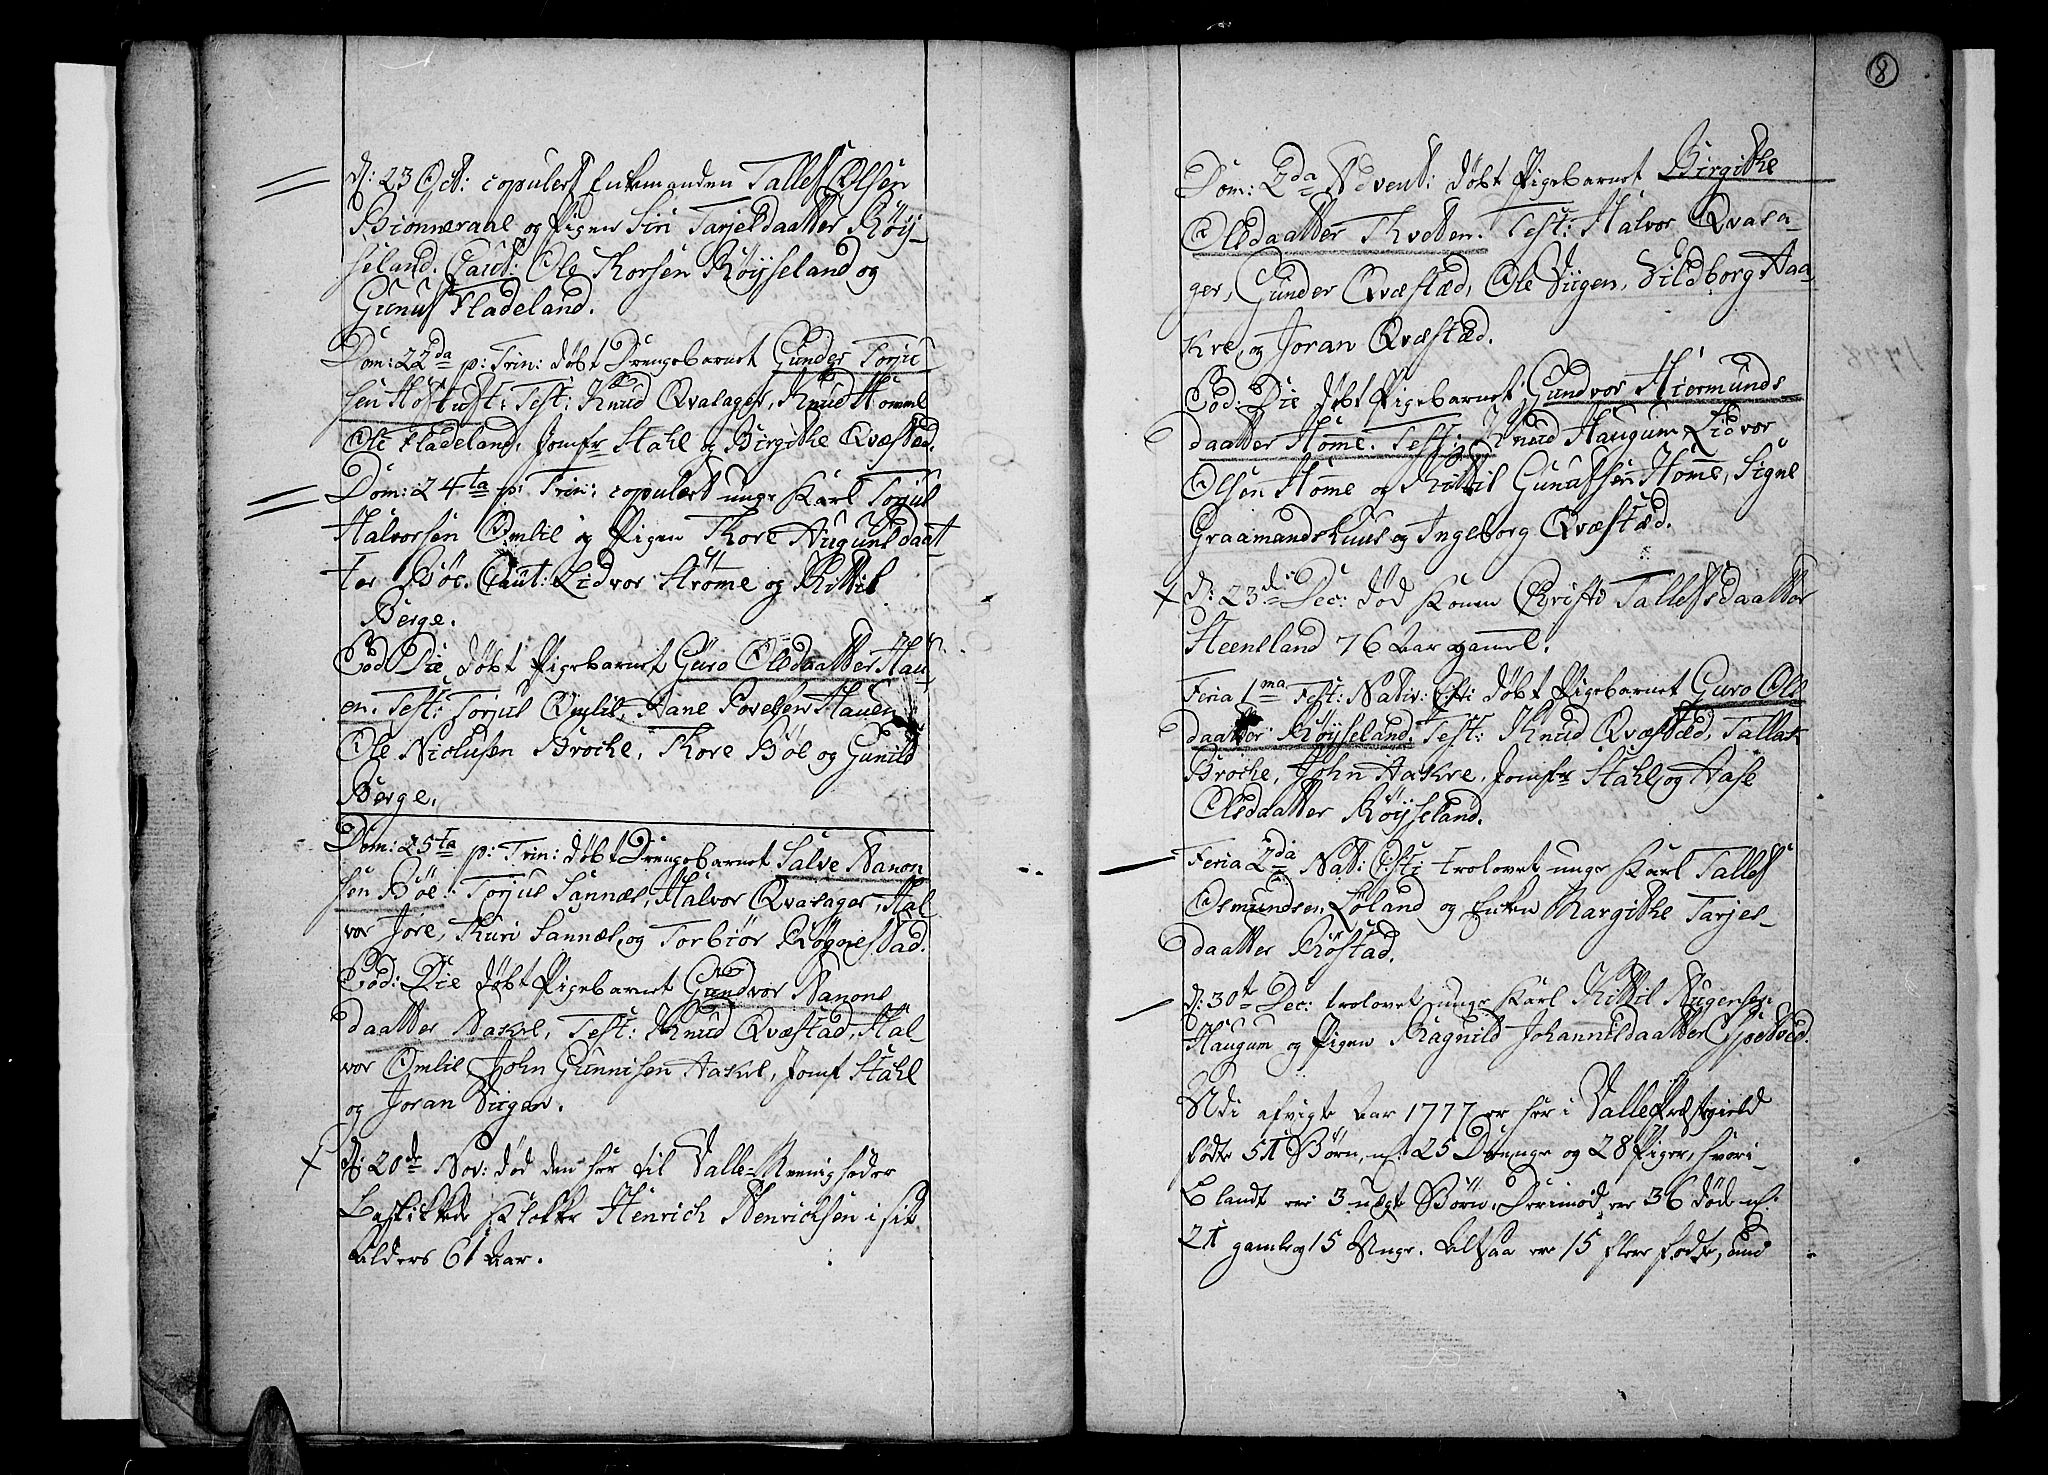 d: 23 Oct: copulert Enkemanden Tallef Olsen
Biornaraae og Pigen Siri Tarjelsdaatter Röij-
seland. Caut: Ole Thorsen Röijseland og
Gunuf Fladeland.
Dom: 22da p: Trin: döbt Drengebarnet Gunder Torju-
sen Test: Knud Qvasager, Knud Homme
Ole Fladeland, Jomfr Stahl og Birgithe Qvæstæd.
Dom: 24ta p: Trin: copulert unge Karl Torjus
Halvorsen Omlie og Pigen Thore Augunsdaat
ter Böe. Caut: Lidvor Ströme og Kittil
Berge.
Eod: Die döbt Pigebarnet Guro Olsdaatter Hau-
en. Test: Torjus Omlie, Aane Povelsen Hauen
Ole Niclusen Brocke, Thore Böe og Gunild
Berge.
Dom: 25ta p: Trin: döbt Drengebarnet Salve Nanon
sen Böe. Torjus Sannæs, Halvor Qvasager, Hal
vor Jore, Thuri Sannæs, og Torbiör Rögnestad.
Eod: Die döbt Pigebarnet Gundvor Nanons
daatter Aakre, Test: Knud Qvæstad, Hal-
vor Omlie John Gunnisen Aakre, Jomf Stahl
og Joran Viigen.
d: 20de Nov: död den her til Valle-Menigheder
Beskikkede Klokker Henrich Henrichsen i sit
Alders 61 Aar.
8
Dom: 2da Advent: döbt Pigebarnet Birgithe
Olsdaatter Tvetten. Test: Halvor Qvasa-
ger, Gunder Qvæstæd, Ole Viigen, Vildborg Aa-
kre, og Joran Qvæstæd.
Eod: Die döbt Pigebarnet Gundvor Hiermunds
daatter Home. Test: Knud Haugum, Lidvor
Olsen Home og Kittil Gunufsen Home, Signe
Graamandshuus og Ingeborg Qvæstæd.
d: 23de Dec: död Konen Christi Tallefsdaatter
Steensland 76 Aar gamel.
Feria 1ma Fest: Nativ: Chti: döbt Pigebarnet Guro Ols
daatter Röijseland. Test: Knud Qvæstæd, Tallak
Brocke, John Aakre, Jomfr Stahl og Aase
Olsdaatter Röijseland.
Feria 2da Nat: Chti: trolovet unge Karl Tallef
Osmundsen Föland og Enken Margithe Tarjes-
daatter Röstad.
d: 30te Dec: trolovet unge Karl Kittil Augensen
Haugum og Pigen Ragnild Johannisdaatter
Udi afvigte Aar 1777 er her i Valle Præstegield
födte 51 Börn, nl: 25 Drenge og 28 Piger, hvori-
blandt ere 3 uægte Börn. Derimod ere 36 döde nl:
21 gamle og 15 Unge. Altsaa ere 15 flere födte, end
1778